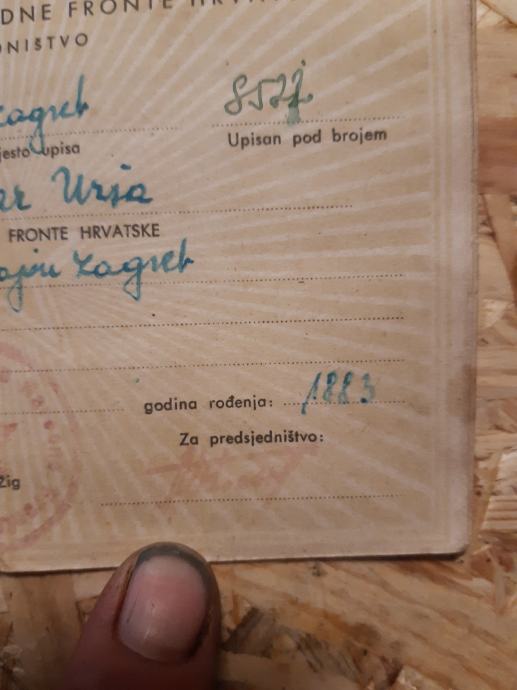 DNE FRONTE HRVAT
DNIŠTVO
Zagreb
8527
jesto upisa
Upisan pod brojem
ar Urša
FRONTE HRVATSKE
Zagreb
godina rođenja: 1883
Za predsjedništvo:
Žig